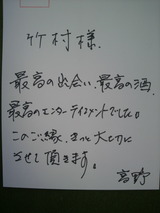 竹村様
最高の出会い、最高の酒、
最高のエンターテイメントでした。
このご縁、きっと大切に
させて頂きます。
高野